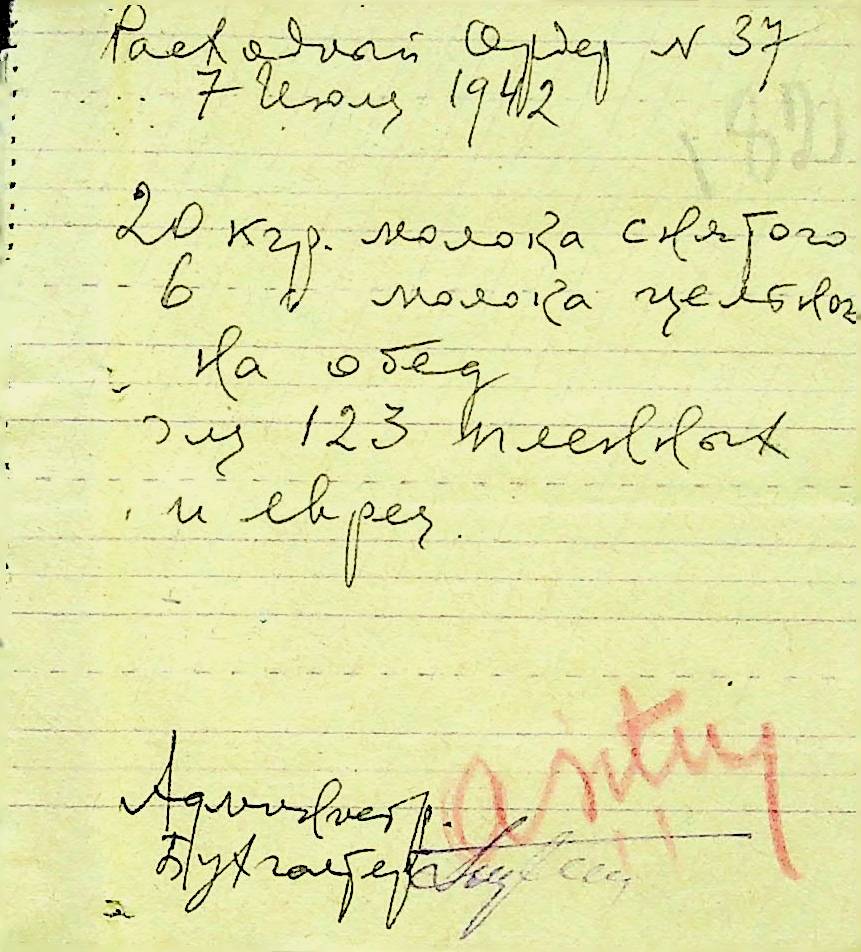 Расходный Ордер N 37
7 Июля 1942
20 кгр. молока снятого
6 " молока цельног
на обед
для 123 пленных
и еврея.
Администр.
Бухгалтер